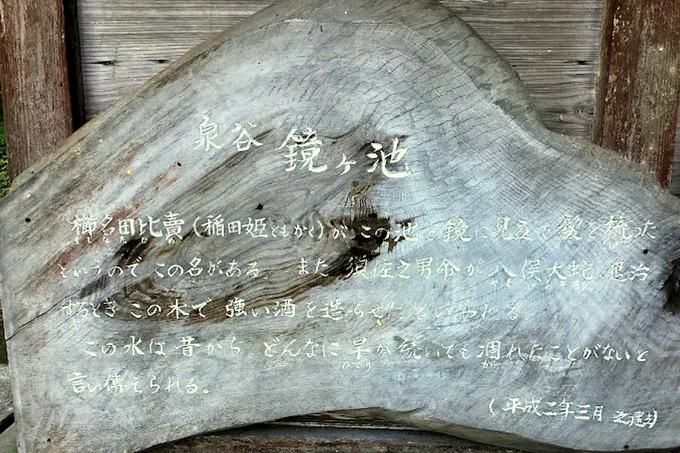 泉谷 鏡ヶ池
櫛名田比賣(稲田姫ともかく)が この池を鏡に見立て髪を梳った
というので この名がある。 また 須佐之男命が 八俣大蛇を退治
するとき この水で 強い酒を造らせたといわれる
この水は昔から どんなに旱が続いても涸れたことがないと
言い傳えられる。
(平成二年三月